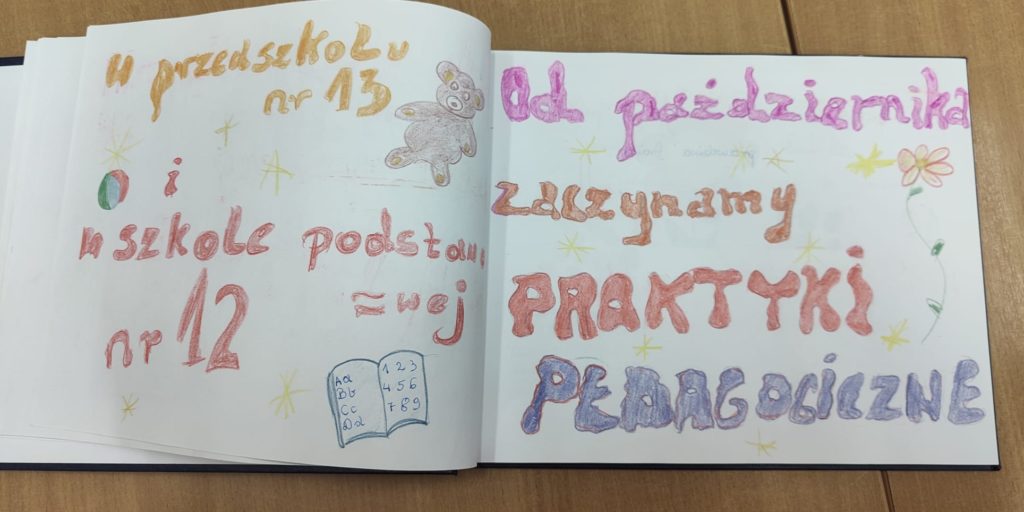 W przedszkolu
nr 13
i
w szkole podstawo
=wej
nr 12
Aa
Bb
Cc
Dd
1 2 3
4 5 6
7 8 9
Od października
zaczynamy
PRAKTYKi
PEDAGOGiCZNE